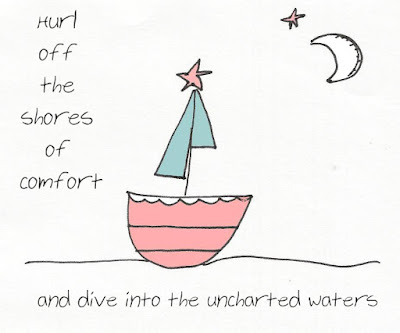 Hurl
off
the
shores
of
comfort
and dive into the uncharted waters